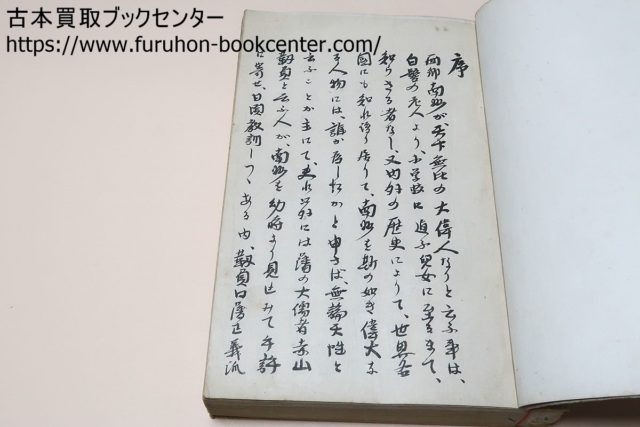 古本買取ブックセンター
https://www.furuhon-bookcenter.com/
序
西郷南洲が天下無比の大偉人なりと云ふ事は、
白髯の老人より、小学校に通ふ児女に至るまで、
知らざる者なし、又内外の歴史によりて、世界各
国にも知れ渡り居りて、南洲を斯の如き偉大な
る人物には、誰が為したかと申さば、無論天性と
云ふことが主にて、更に以外には藩の大儒者赤山
靱負と云ふ人が、南洲を幼時より見込みて手許
に寄せ、日 教訓しつゝある内、靱負 正義派